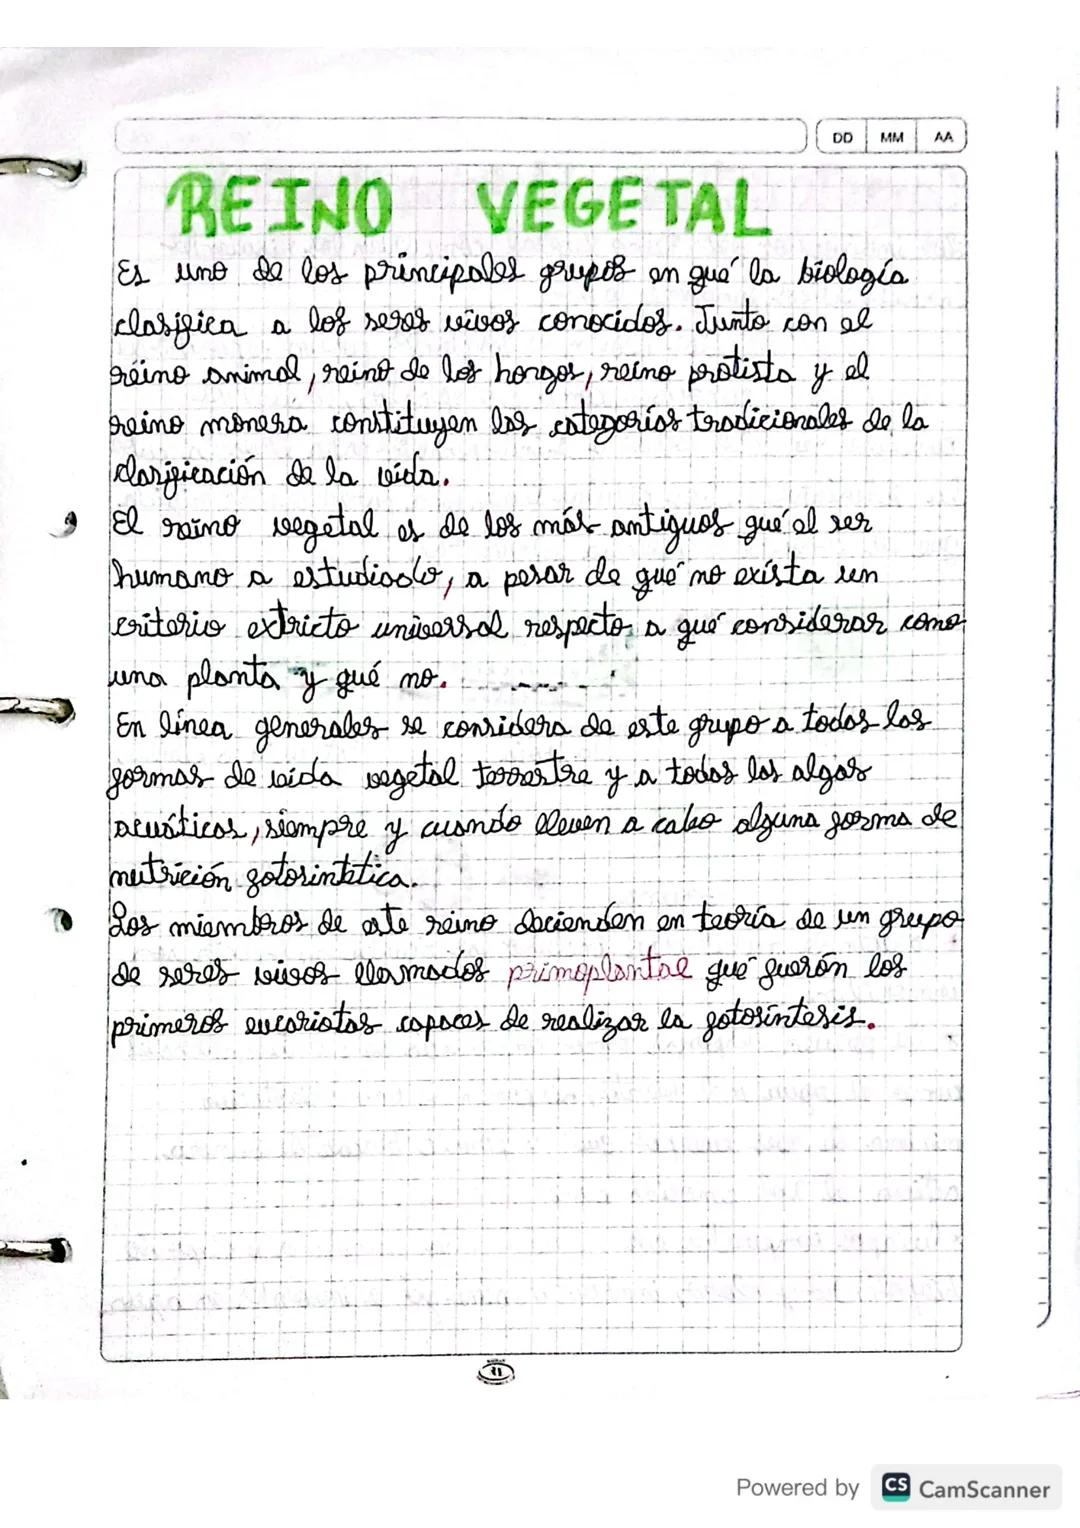 DD MM AA
REINO VEGETAL
Es uno de los principales grupos en qué la biología
clasifica a los seres vivos conocidos. Junto con el
reino animal, reino de los hongos, reino protista y el
reino monera constituyen las categorías tradicionales de la
clasificación de la vida.
El reino vegetal es de los más antiguos qué el ser
humano a estudiado, a pesar de qué no exista un
criterio extricto universal respecto a qué considerar como
una planta y qué no.
En línea generales se considera de este grupo a todas las
formas de vida vegetal terrestre y a todas las algas
acuáticas, siempre y cuando lleven a cabo alguna forma de
nutrición fotosintética.
Los miembros de este reino decienden en teoría de un grupo
de seres vivos llamados primoplantae qué fuerón los
primeros eucariotas capaces de realizar la fotosíntesis.
Powered by CS CamScanner